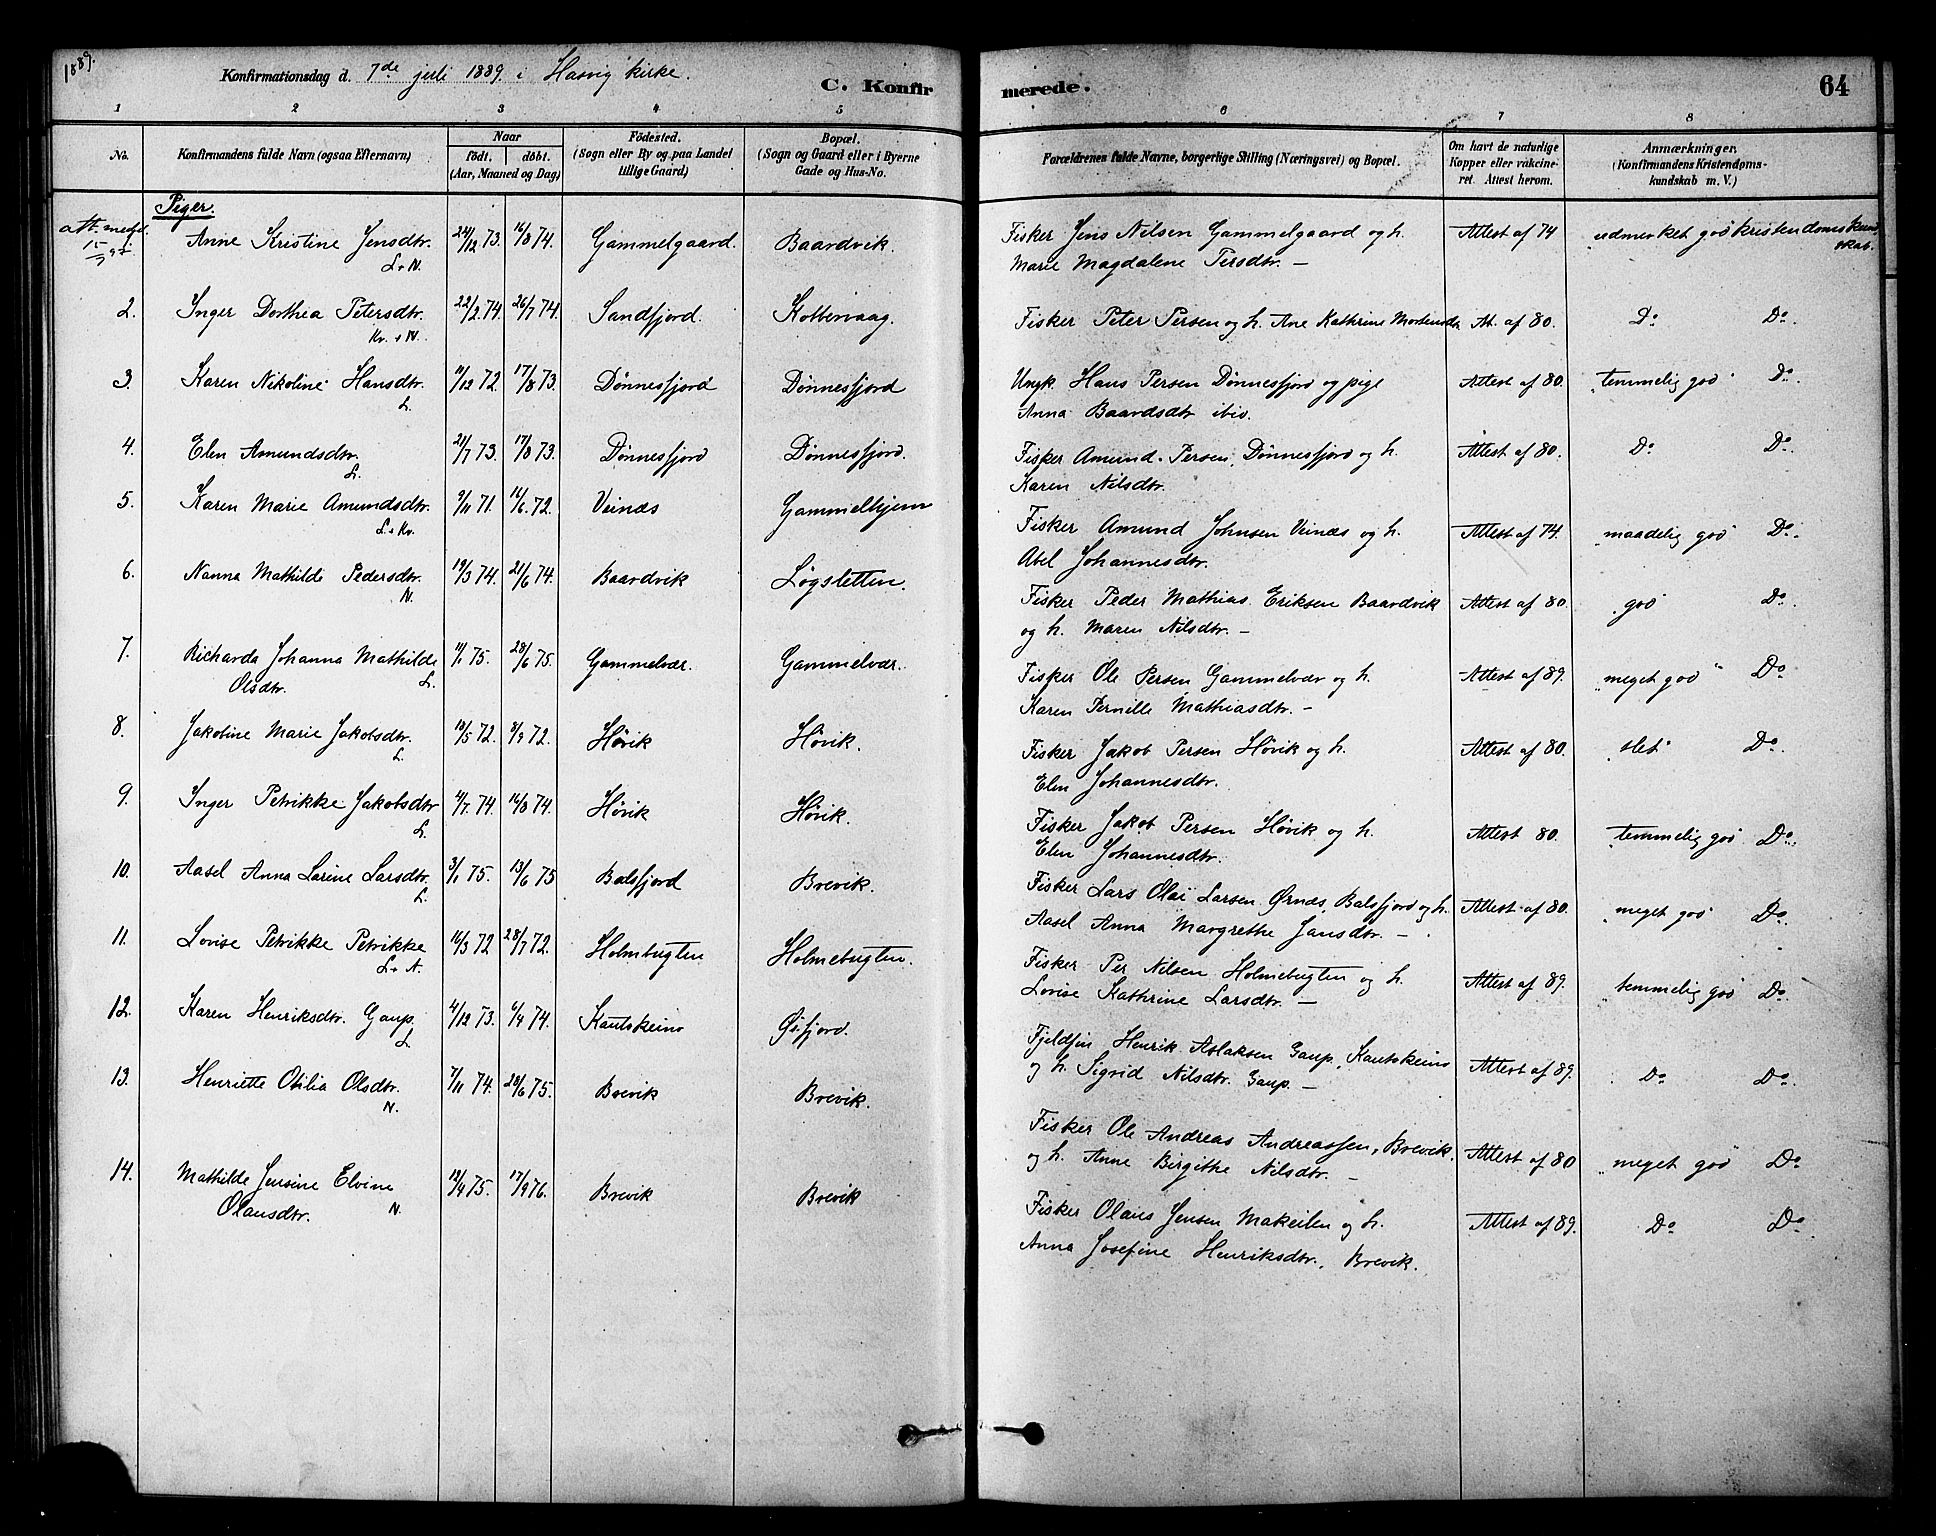 1889.
Konfirmationsdag d. 7de juli 1889 i Hasvig kirke.
C. Konfirmerede.
64
1 2 3 4 5 6 7 8
No.
Konfirmandens fulde Navn (ogsaa Efternavn)
Naar
födt. döbt.
(Aar, Maaned og Dag)
Födested.
(Sogn eller By og paa Landet
tillige Gaard)
Bopæl.
(Sogn og Gaard eller i Byerne
Gade og Hus-No.
Forældrenes fulde Navne, borgerlige Stilling (Næringsvei) og Bopæl.
Om havt de naturlige
Kopper eller vakcine-
ret. Attest herom.
Anmærkninger.
(Konfirmandens Kristendoms-
kundskab m. V.)
Piger.
att. medd.
15/5 97.
Anne Kristine Jensdtr. 24/12 73. 16/8 74. Gammelgaard. Baardvik. Fisker Jens Nilsen Gammelgaard og h. Attest af 74 udmerket god kristendomskund-
L + N. Marie Magdalene Persdtr. — skab.
2. Inger Dorthea Petersdtr. 22/2 74. 26/7 74. Sandfjord. Kobbervaag. Fisker Peter Persen og h. Ane Kathrine Mortensdtr At. af 80. Do Do.
Kv. + N.
3. Karen Nikoline Hansdtr. 11/12 72 17/8 73. Dønnesfjord Dønnesfjord Ungk. Hans Persen Dønnesfjord og pige Attest af 80. "temmelig god" Do.
L. Anna Baardsdtr ibid.
4. Elen Amundsdtr. 21/7 73. 17/8 73. Dønnesfjord Dønnesfjord. Fisker Amund Persen, Dønnesfjord og h. Attest af 80. Do Do.
L. Karen Nilsdtr.
5. Karen Marie Amundsdtr. 9/11 71. 16/6 72. Veinæs Gammelhjem Fisker Amund Johnsen Veinæs og h. Attest af 74. "maadelig god" Do.
L + Kv. Abel Johannesdtr.
6. Nanna Mathilde Pedersdtr. 19/3 74. 21/6 74. Baardvik Løgsletten. Fisker Peder Mathias Eriksen Baardvik Attest af 80. "god" Do.
N. og h. Maren Nilsdtr. —
7. Richarda Johanna Mathilde 11/1 75. 28/6 75. Gammelvær. Gammelvær. Fisker Ole Persen Gammelvær og h. Attest af 89. "meget god" Do
Olsdtr. L. Karen Pernille Mathiasdtr. —
8. Jakobine Marie Jakobsdtr. 19/5 72. 8/9 72. Høvik Høvik. Fisker Jakob Persen Høvik og h. Attest af 80. slet" Do.
L. Elen Johannesdtr.
9. Inger Petrikke Jakobsdtr 4/7 74. 16/8 74. Høvik Høvik. Fisker Jakob Persen Høvik og h. Attest 80. "temmelig god Do.
L. Elen Johannesdtr.
10. Aasel Anna Larine Larsdtr. 3/1 75. 13/6 75 Balsfjord Brevik. Fisker Lars Olai Larsen Ørnæs, Balsfjord og h. Attest af 80. "meget god" Do.
L. Aasel Anna Margrethe Jansdtr. —
11. Lovise Petrikke Petrikke 16/3 72 28/7 72. Holmbugten Holmebugten. Fisker Per Nilsen Holmebugten og h. Attest af 89. "temmelig god" Do.
L + N. Lovise Kathrine Larsdtr. —
12. Karen Henriksdtr. Gaup. 4/12 73. 6/4 74. Kautokeino Øxfjord. Fjeldfin Henrik Aslaksen Gaup, Kautokeino Attest af 89. Do Do.
L. og h. Sigrid Nilsdtr. Gaup. —
13. Henriette Otilia Olsdtr. 7/11 74. 20/6 75. Brevik Brevik. Fisker Ole Andreas Andreassen, Brevik. Attest af 80 "meget god" Do
N. og h. Anne Birgithe Nilsdtr. —
14. Mathilde Jensine Elvine 12/4 75. 17/9 76. Brevik Brevik Fisker Olaus Jensen Makeilen og h. Attest af 89. Do Do.
Olausdtr. N. Anna Josefine Henriksdtr., Brevik.